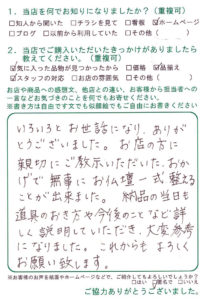 1. 当店を何でお知りになりましたか？（重複可）
□知人から聞いた □チラシを見て □看板 ☑ホームページ
□ブログ □以前から利用していた □その他（　）
2. 当店でご購入いただいたきっかけがありましたら
教えてください。（重複可）
☑気に入った品物が見つかったから □価格 ☑品揃え
☑スタッフの対応 □お店の雰囲気 □その他（　）
お店や商品への感想、他店との違い、お客様から担当者への
一言などお気づきのことを何でもお寄せください。
※書き方は自由です文でも似顔絵でもご自由にお書きください。
いろいろとお世話になり、ありが
とうございました。お店の方に
親切にご教示いただいた、おか
げで無事にお仏壇一式整える
ことが出来ました。納品の当日も
道具のおき方や今後のことなど詳
しく説明していただき、大変参考
になりました。これからもよろしく
お願い致します。
※お客様のお声を紙面やホームページなどで、ご紹介してもよろしいでしょうか？
□はい □匿名で □いいえ
ご協力ありがとうございました。